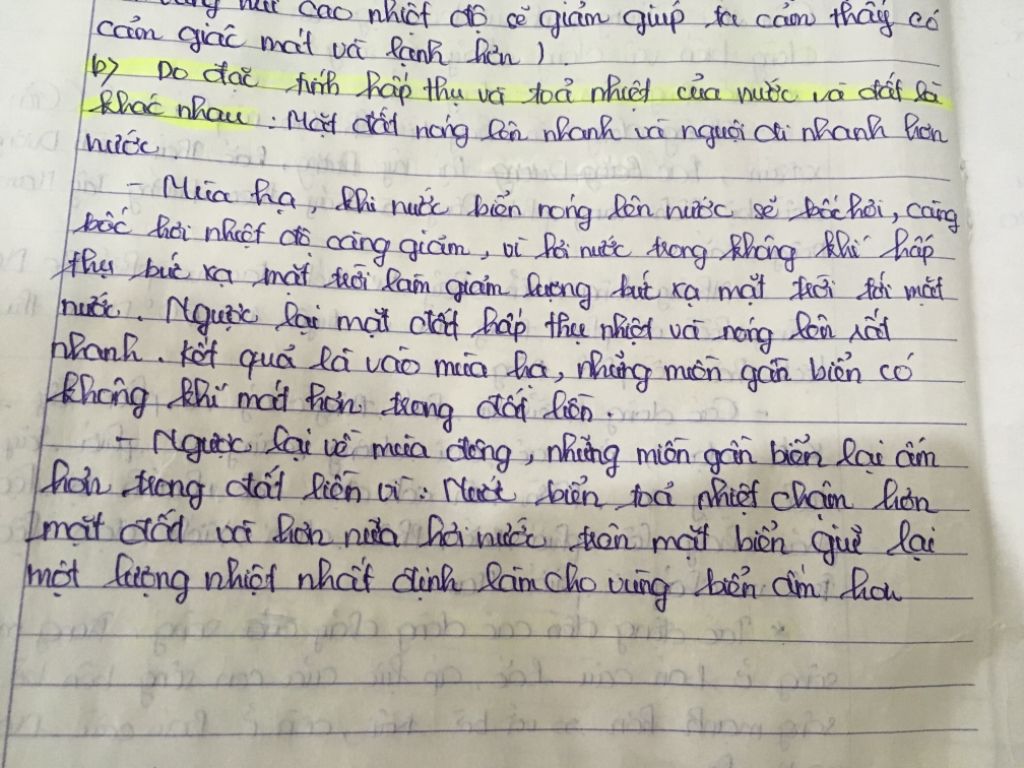 núi cao nhiệt độ sẽ giảm giúp ta cảm thấy có
cảm giác mát và lạnh hơn ).
b) Do đặc tính hấp thụ và toả nhiệt của nước và đất là
khác nhau. Mặt đất nóng lên nhanh và nguội đi nhanh hơn
nước.
- Mùa hạ, khi nước biển nóng lên nước sẽ bốc hơi, càng
bốc hơi nhiệt độ càng giảm, vì hơi nước trong không khí hấp
thụ bức xạ mặt trời làm giảm lượng bức xạ mặt trời tới mặt
nước. Ngược lại mặt đất hấp thụ nhiệt và nóng lên rất
nhanh. Kết quả là vào mùa hạ, những miền gần biển có
không khí mát hơn trong đất liền.
- Ngược lại về mùa đông, những miền gần biển lại ấm
hơn trong đất liền vì: Nước biển toả nhiệt chậm hơn
mặt đất và hơn nữa hơi nước trên mặt biển giữ lại
một lượng nhiệt nhất định làm cho vùng biển ấm hơn